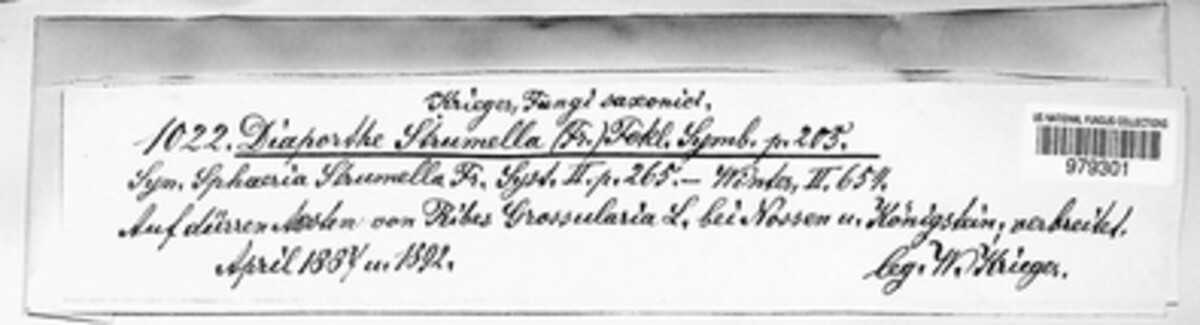 Krieger, Fungi saxonici.
1022. Diaporthe Strumella (Fr.) Fckl. Symb. p. 205.
US NATIONAL FUNGUS COLLECTIONS
979301
Syn. Sphaeria Strumella Fr. Syst. II. p. 265. — Winter, II. 654.
Auf dürren Aesten von Ribes Grossularia L. bei Nossen u. Königstein, verbreitet.
April 1884 u. 1892.
leg. W. Krieger.